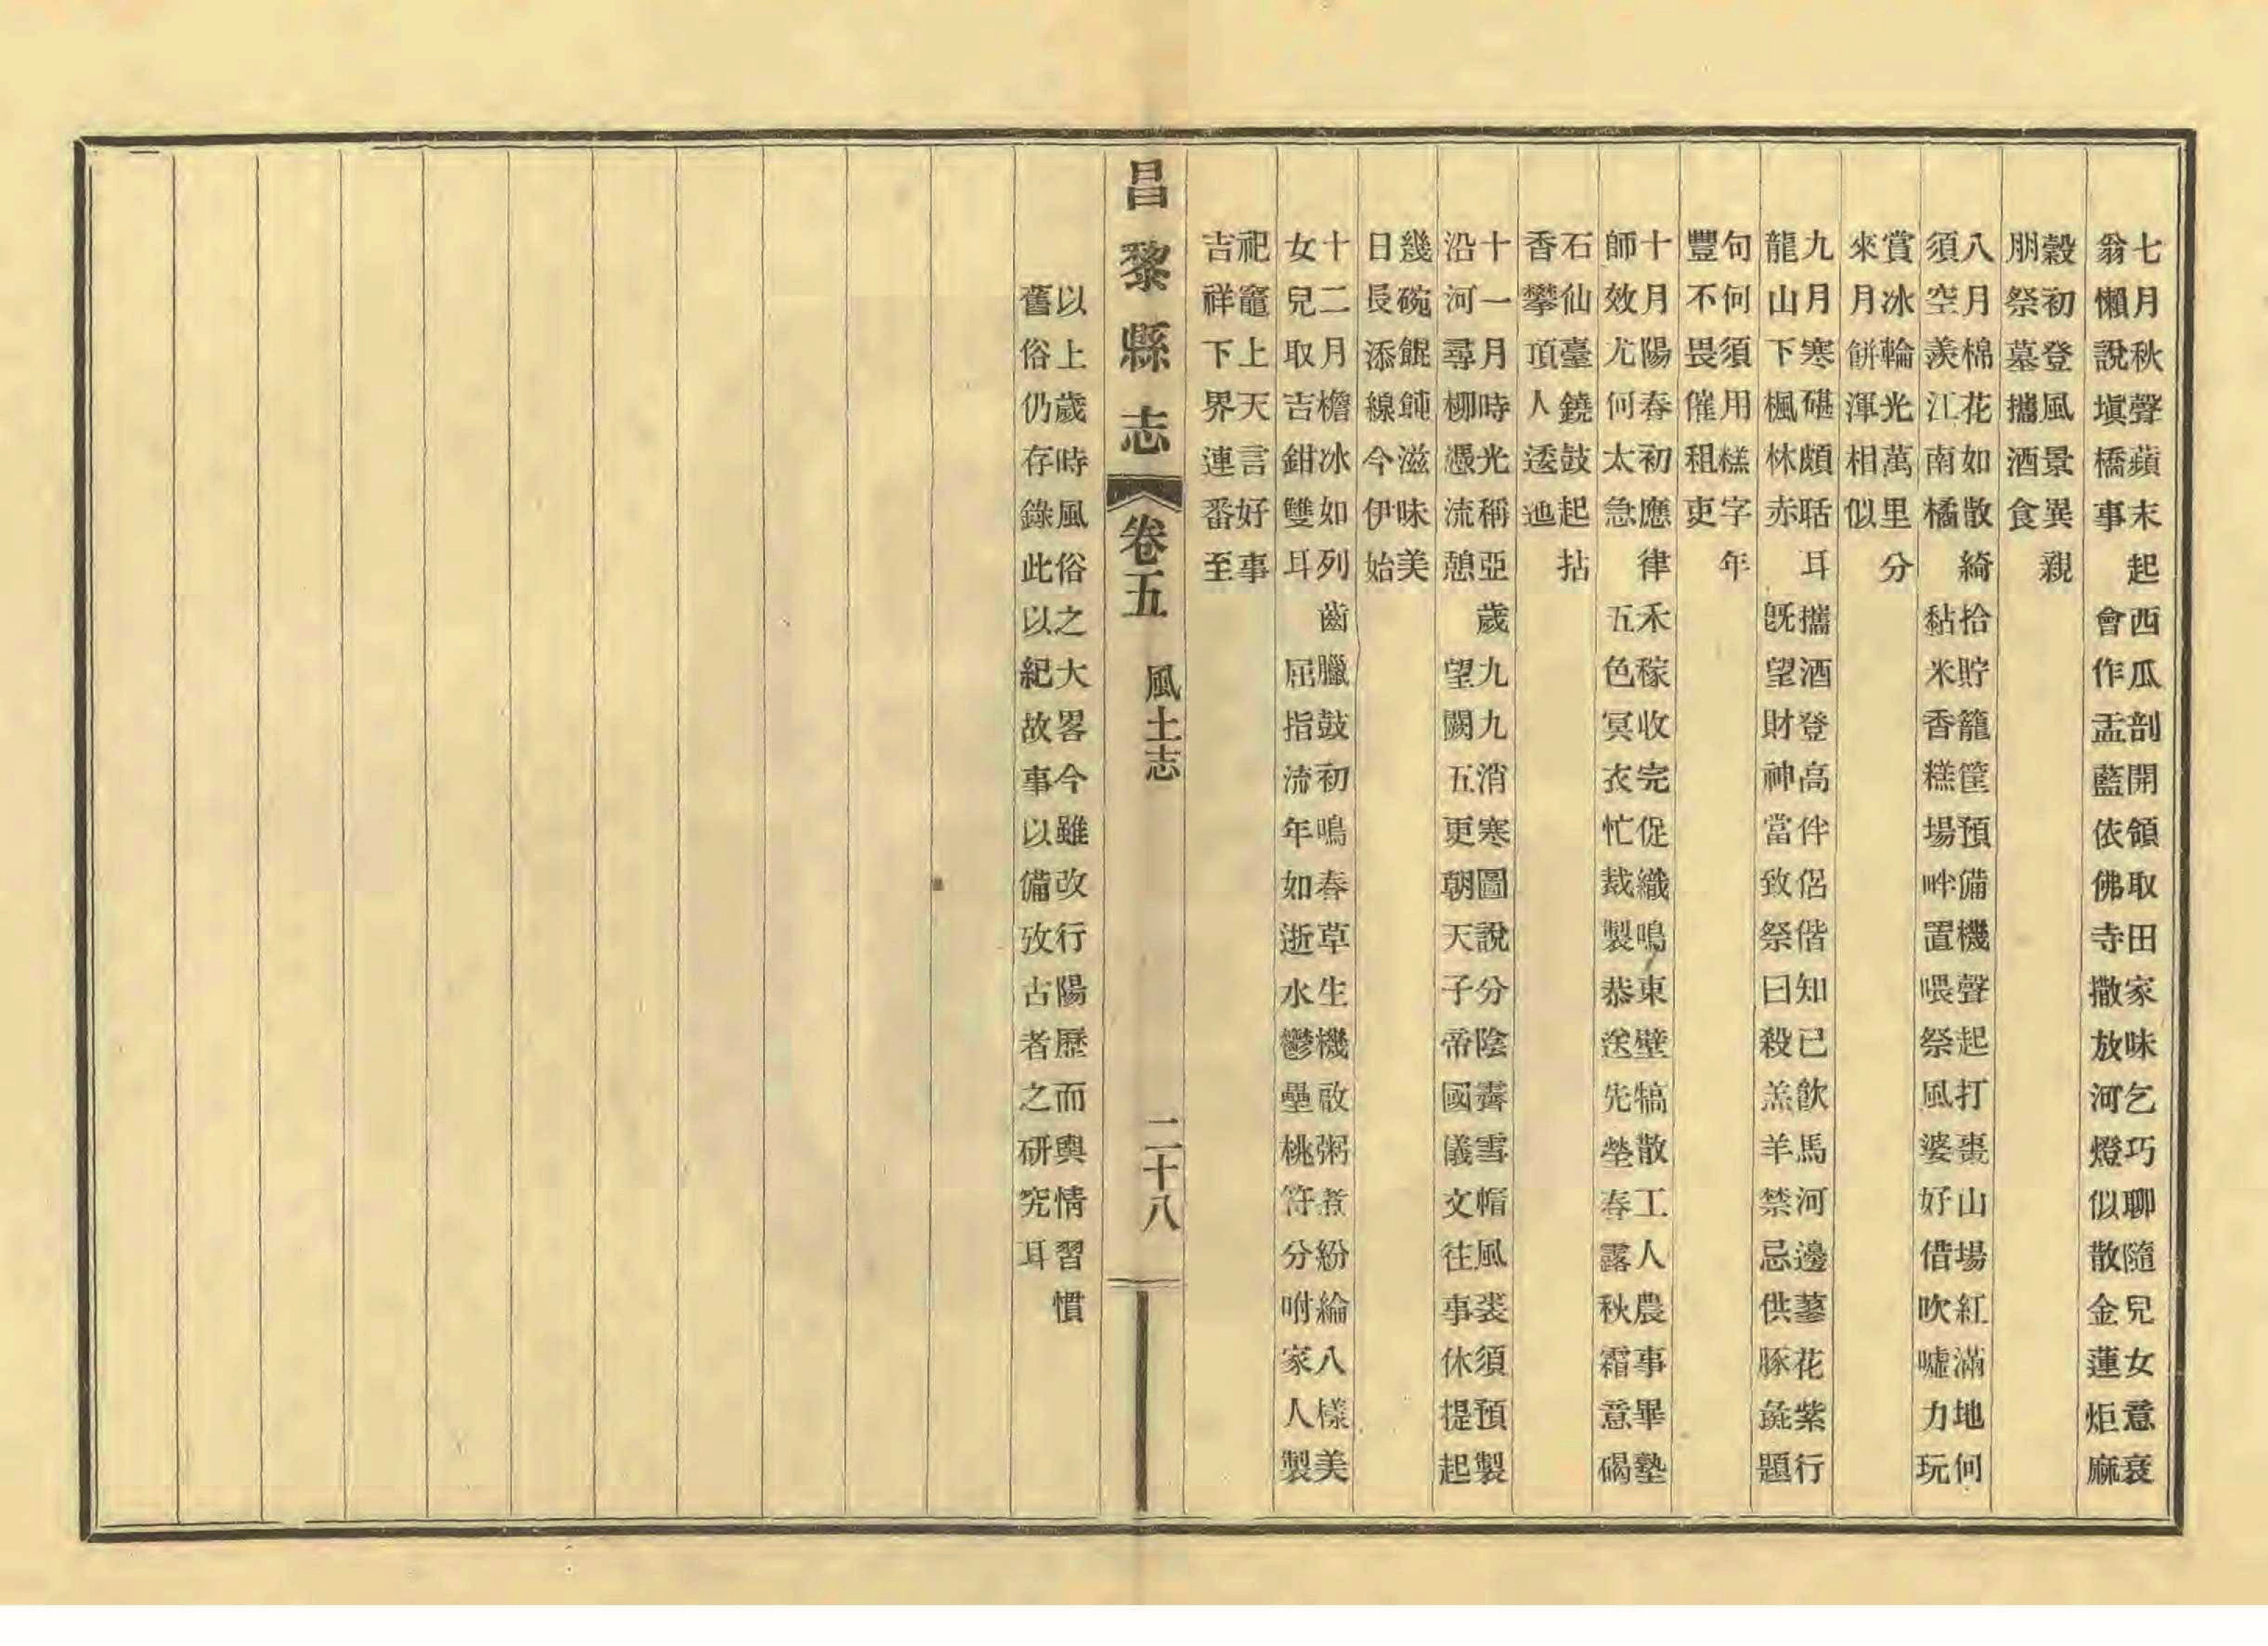 七月秋聲蘋末起西瓜剖開領取田家味乞巧聊隨兒女意衰
翁懶說塡橋事會作盂藍依佛寺撒放河燈似散金蓮炬麻
穀初登風景異親
朋祭墓攜酒食
八月棉花如散綺拾貯籠筐預備機聲起打棗山場紅滿地何
須空羨江南橘黏米香糕場畔置喂祭風婆好借吹噓力玩
賞冰輪光萬里分
來月餅渾相似
九月寒碪頗聒耳攜酒登高伴侶偕知已飲馬河邊蓼花紫行
龍山下楓林赤旣望財神當致祭曰殺羔羊禁忌供豚彘題
句何須用糕字年
豐不畏催租吏
十月陽春初應律禾稼收完促織鳴東壁犒散工人農事畢塾
師效尤何太急五色冥衣忙裁製恭送先塋春露秋霜意碣
石仙臺鐃鼓起拈
香攀頂人逶迤
十一月時光稱亞歲九九消寒圖說分陰霽雪帽風裘須預製
沿河尋柳憑流憩望闕五更朝天子帝國儀文往事休提起
幾碗餛飩滋味美
日長添線今伊始
十二月檐冰如列齒臘鼓初鳴春草生機啟粥煮紛綸八樣美
女兒取吉鉗雙耳屈指流年如逝水鬱壘桃符分咐家人製
祀竈上天言好事
吉祥下界連番至
昌黎縣志 卷五 風土志 二十八
以上歲時風俗之大畧今雖改行陽歷而輿情習慣
舊俗仍存錄此以紀故事以備攷古者之研究耳